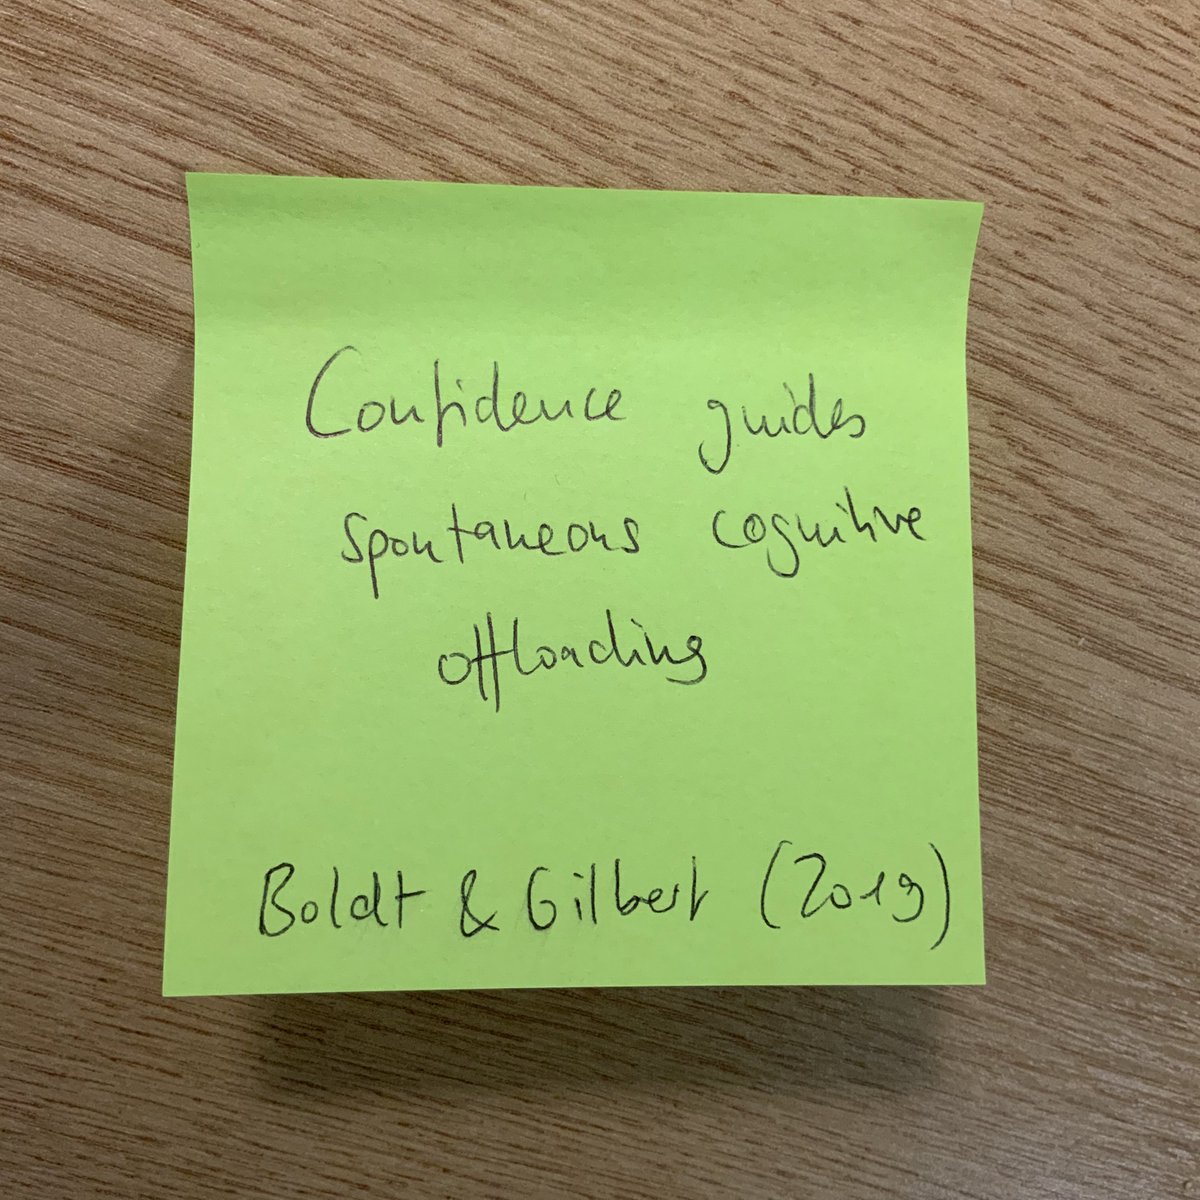 Confidence guides
spontaneous cognitive
offloading
Boldt & Gilbert (2019)